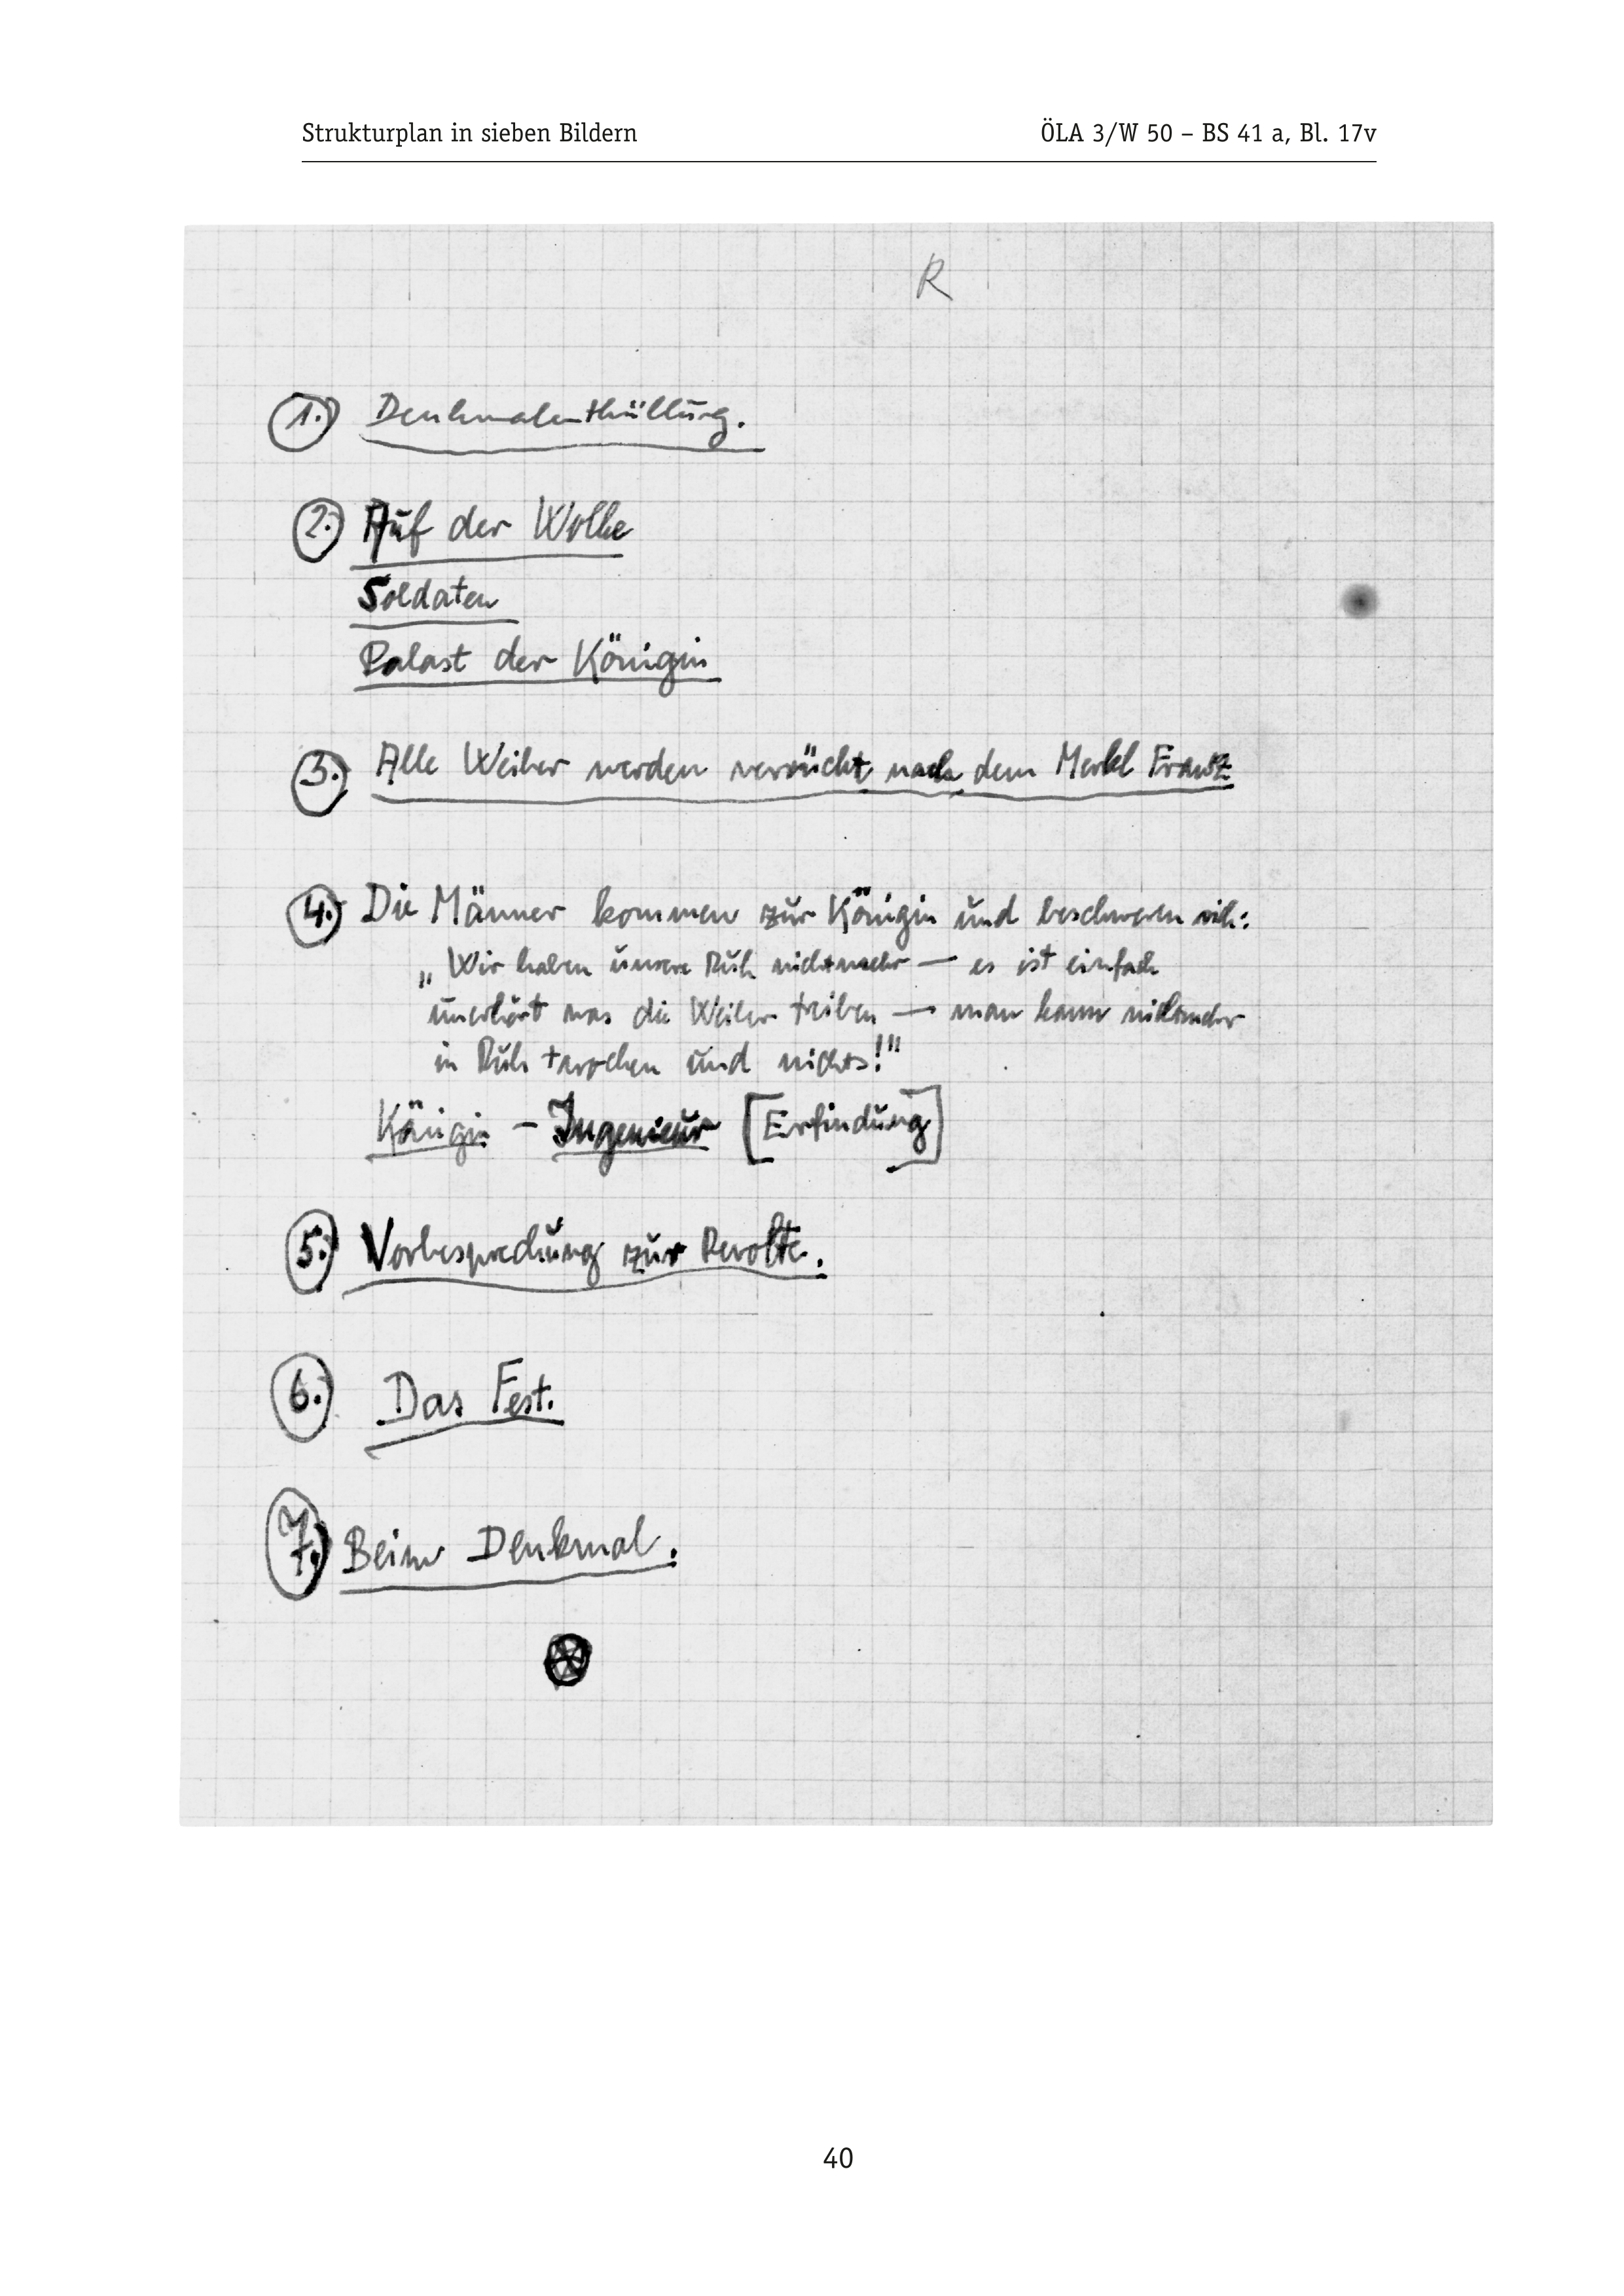 Strukturplan in sieben Bildern ÖLA 3/W 50 – BS 41 a, Bl. 17v
R
1. Denkmalenthüllung.
2. Auf der Wolke
Soldaten
Palast der Königin
3. Alle Weiber werden verrückt nach dem Merkl Franz
4. Die Männer kommen zur Königin und beschweren sich:
„Wir haben unsere Ruh nichtmehr — es ist einfach
unerhört was die Weiber treiben — man kann nichtmehr
in Ruh und nichts!"
Königin – Ingenieur [Erfindung]
5. Vorbesprechung zur Revolte.
6. Das Fest.
7. Beim Denkmal.
40